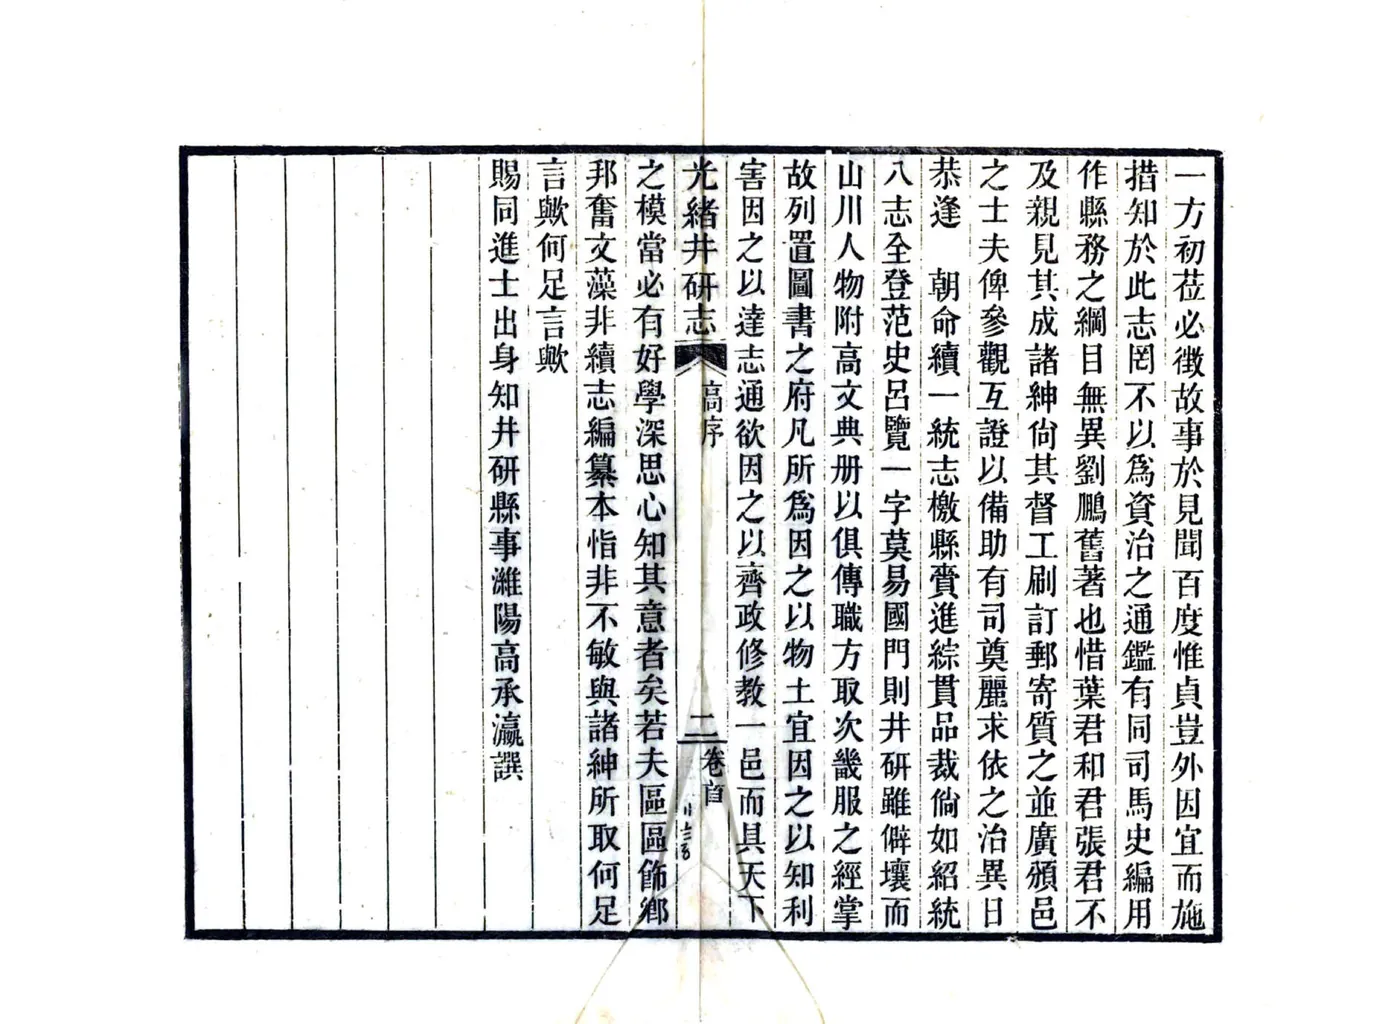 一方初莅必徵故事於見聞百度惟貞豈外因宜而施
措知於此志罔不以爲資治之通鑑有同司馬史編用
作縣務之綱目無異劉鵬舊著也惜葉君和君張君不
及親見其成諸紳尙其督工刷訂郵寄質之並廣頒邑
之士夫俾參觀互證以備助有司奠麗求依之治異日
恭逢　朝命續一統志檄縣賫進綜貫品裁倘如紹統
八志全登范史呂覽一字莫易國門則井研雖僻壤而
山川人物附高文典册以俱傳職方取次畿服之經掌
故列置圖書之府凡所爲因之以物土宜因之以知利
害因之以達志通欲因之以齊政修教一邑而具天下
光緒井研志
高序
二
卷首
之模當必有好學深思心知其意者矣若夫區區飾鄕
邦奮文藻非續志編纂本恉非不敏與諸紳所取何足
言歟何足言歟
賜同進士出身知井研縣事濰陽高承瀛譔